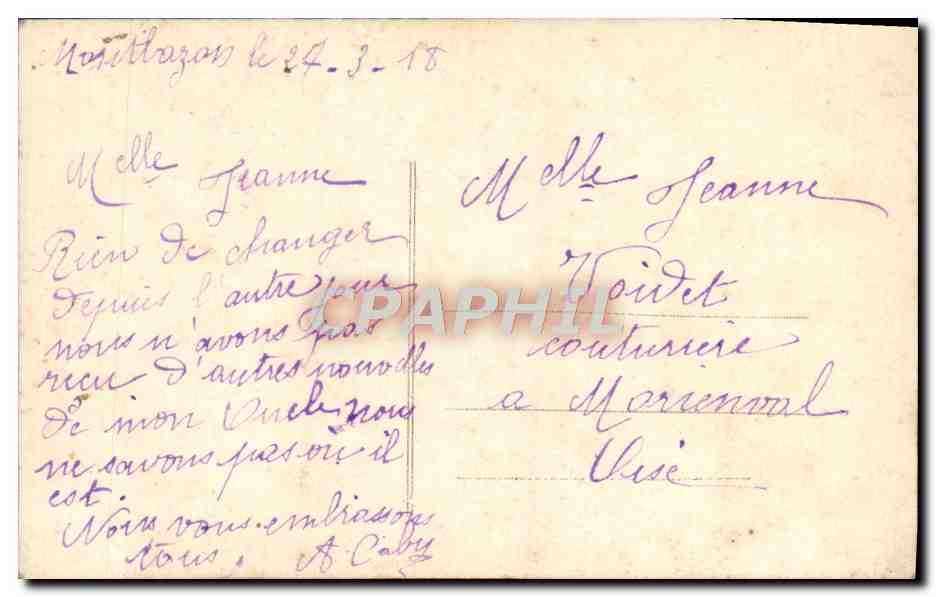 Montbazon le 27-3-18
Melle Jeanne
Rien de changer
depuis l'autre jour
nous n'avons pas
recu d'autres nouvelles
de mon Oncle, nous
ne savons pas où il
est.
Nous vous embrassons
tous. A Caby
Melle Jeanne
Voidet
couturiere
a Morienval
Oise
CPAPHIL